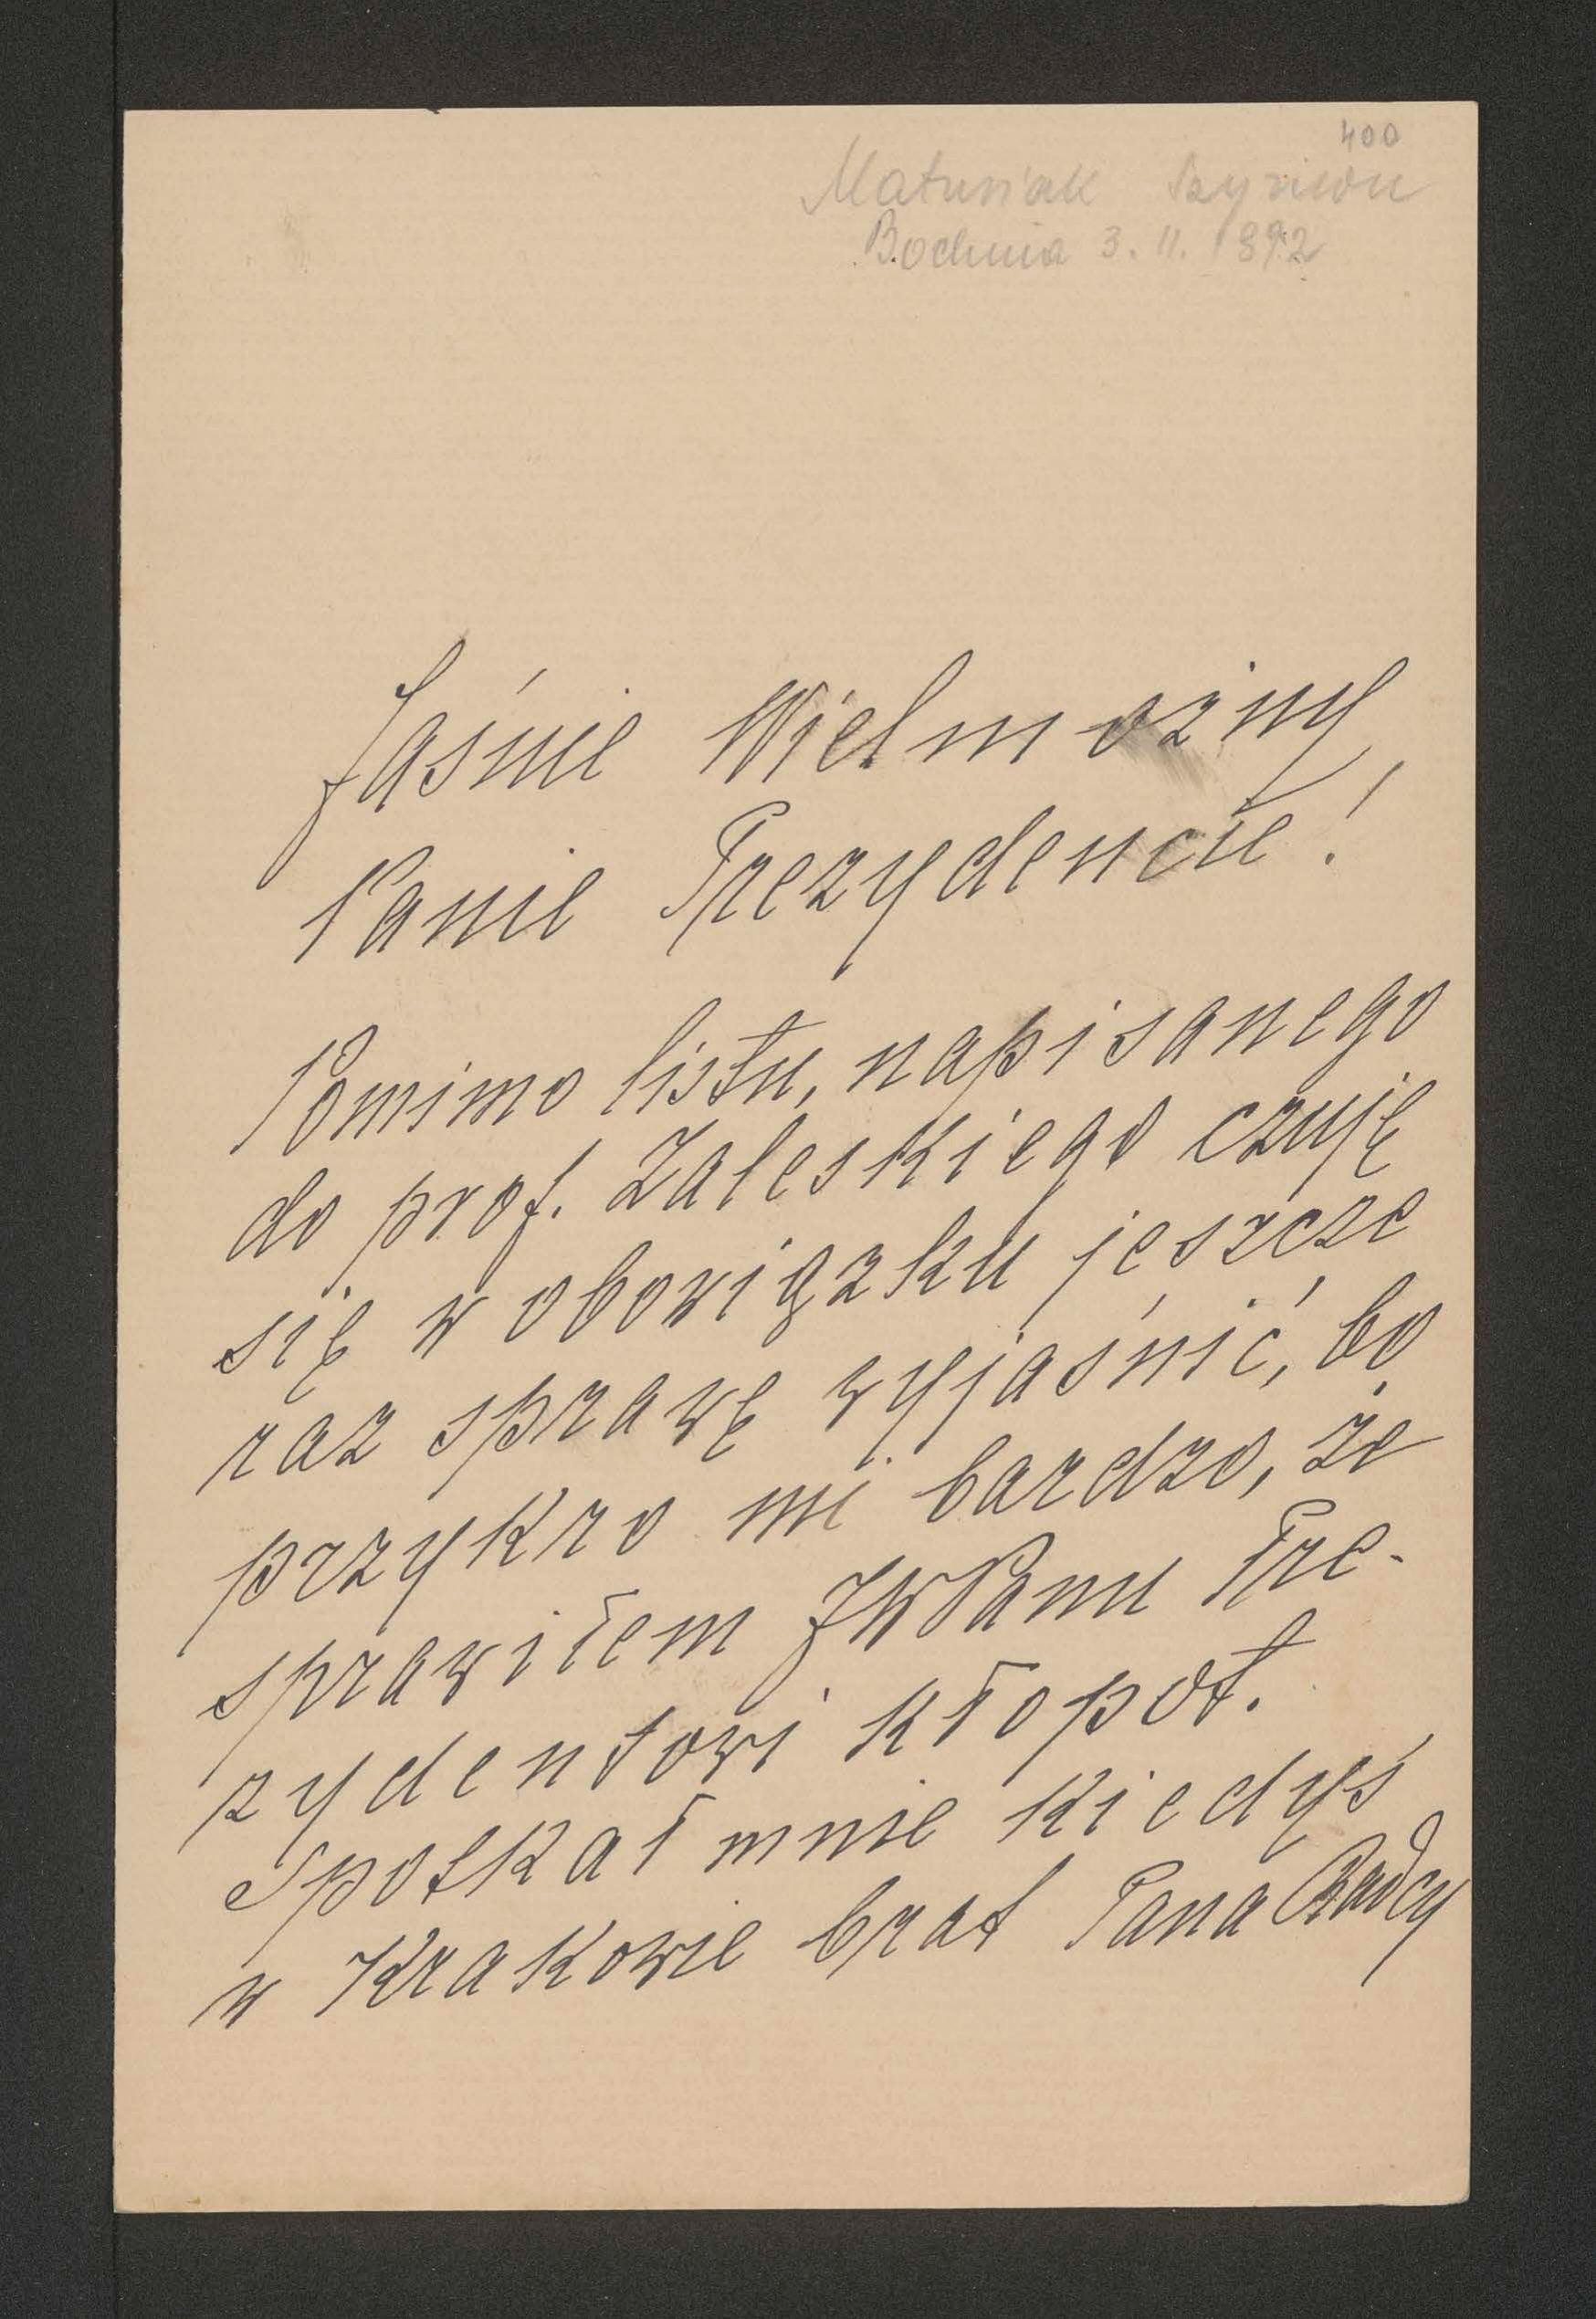 400
Matusiak Szymon
Bochnia 3. II. 1892
Jaśnie Wielmożny
Panie Prezydencie!
Pomimo listu, napisanego
do prof. Zaleskiego czuję
się w obowiązku jeszcze
raz sprawę wyjaśnić, bo
przykro mi bardzo, że
sprawiłem JWPanu Pre-
zydentowi kłopot.
Spotkał mnie kiedyś
w Krakowie brat Pana Radcy